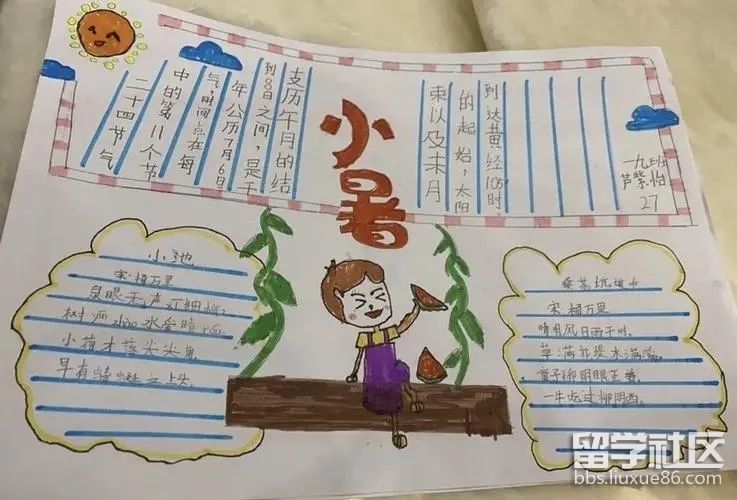 小暑
二十四节气
中的第11个节
气,时间点在每
年公历7月6日
到8日之间,是干
支历午月的结
束以及未月
的起始,太阳
到达黄经105°时
一九班
芦紫怡
27
小池
宋 杨万里
泉眼无声
树 zhāo 水爱晴 róu
小荷 尖尖角
早有 立上头
桑茶坑道中
宋 杨万里
晴 风日 干时
草满花堤水满溪
童子柳阴眠正
一牛吃过柳阴西
留学社区
bbs.liuxue86.com